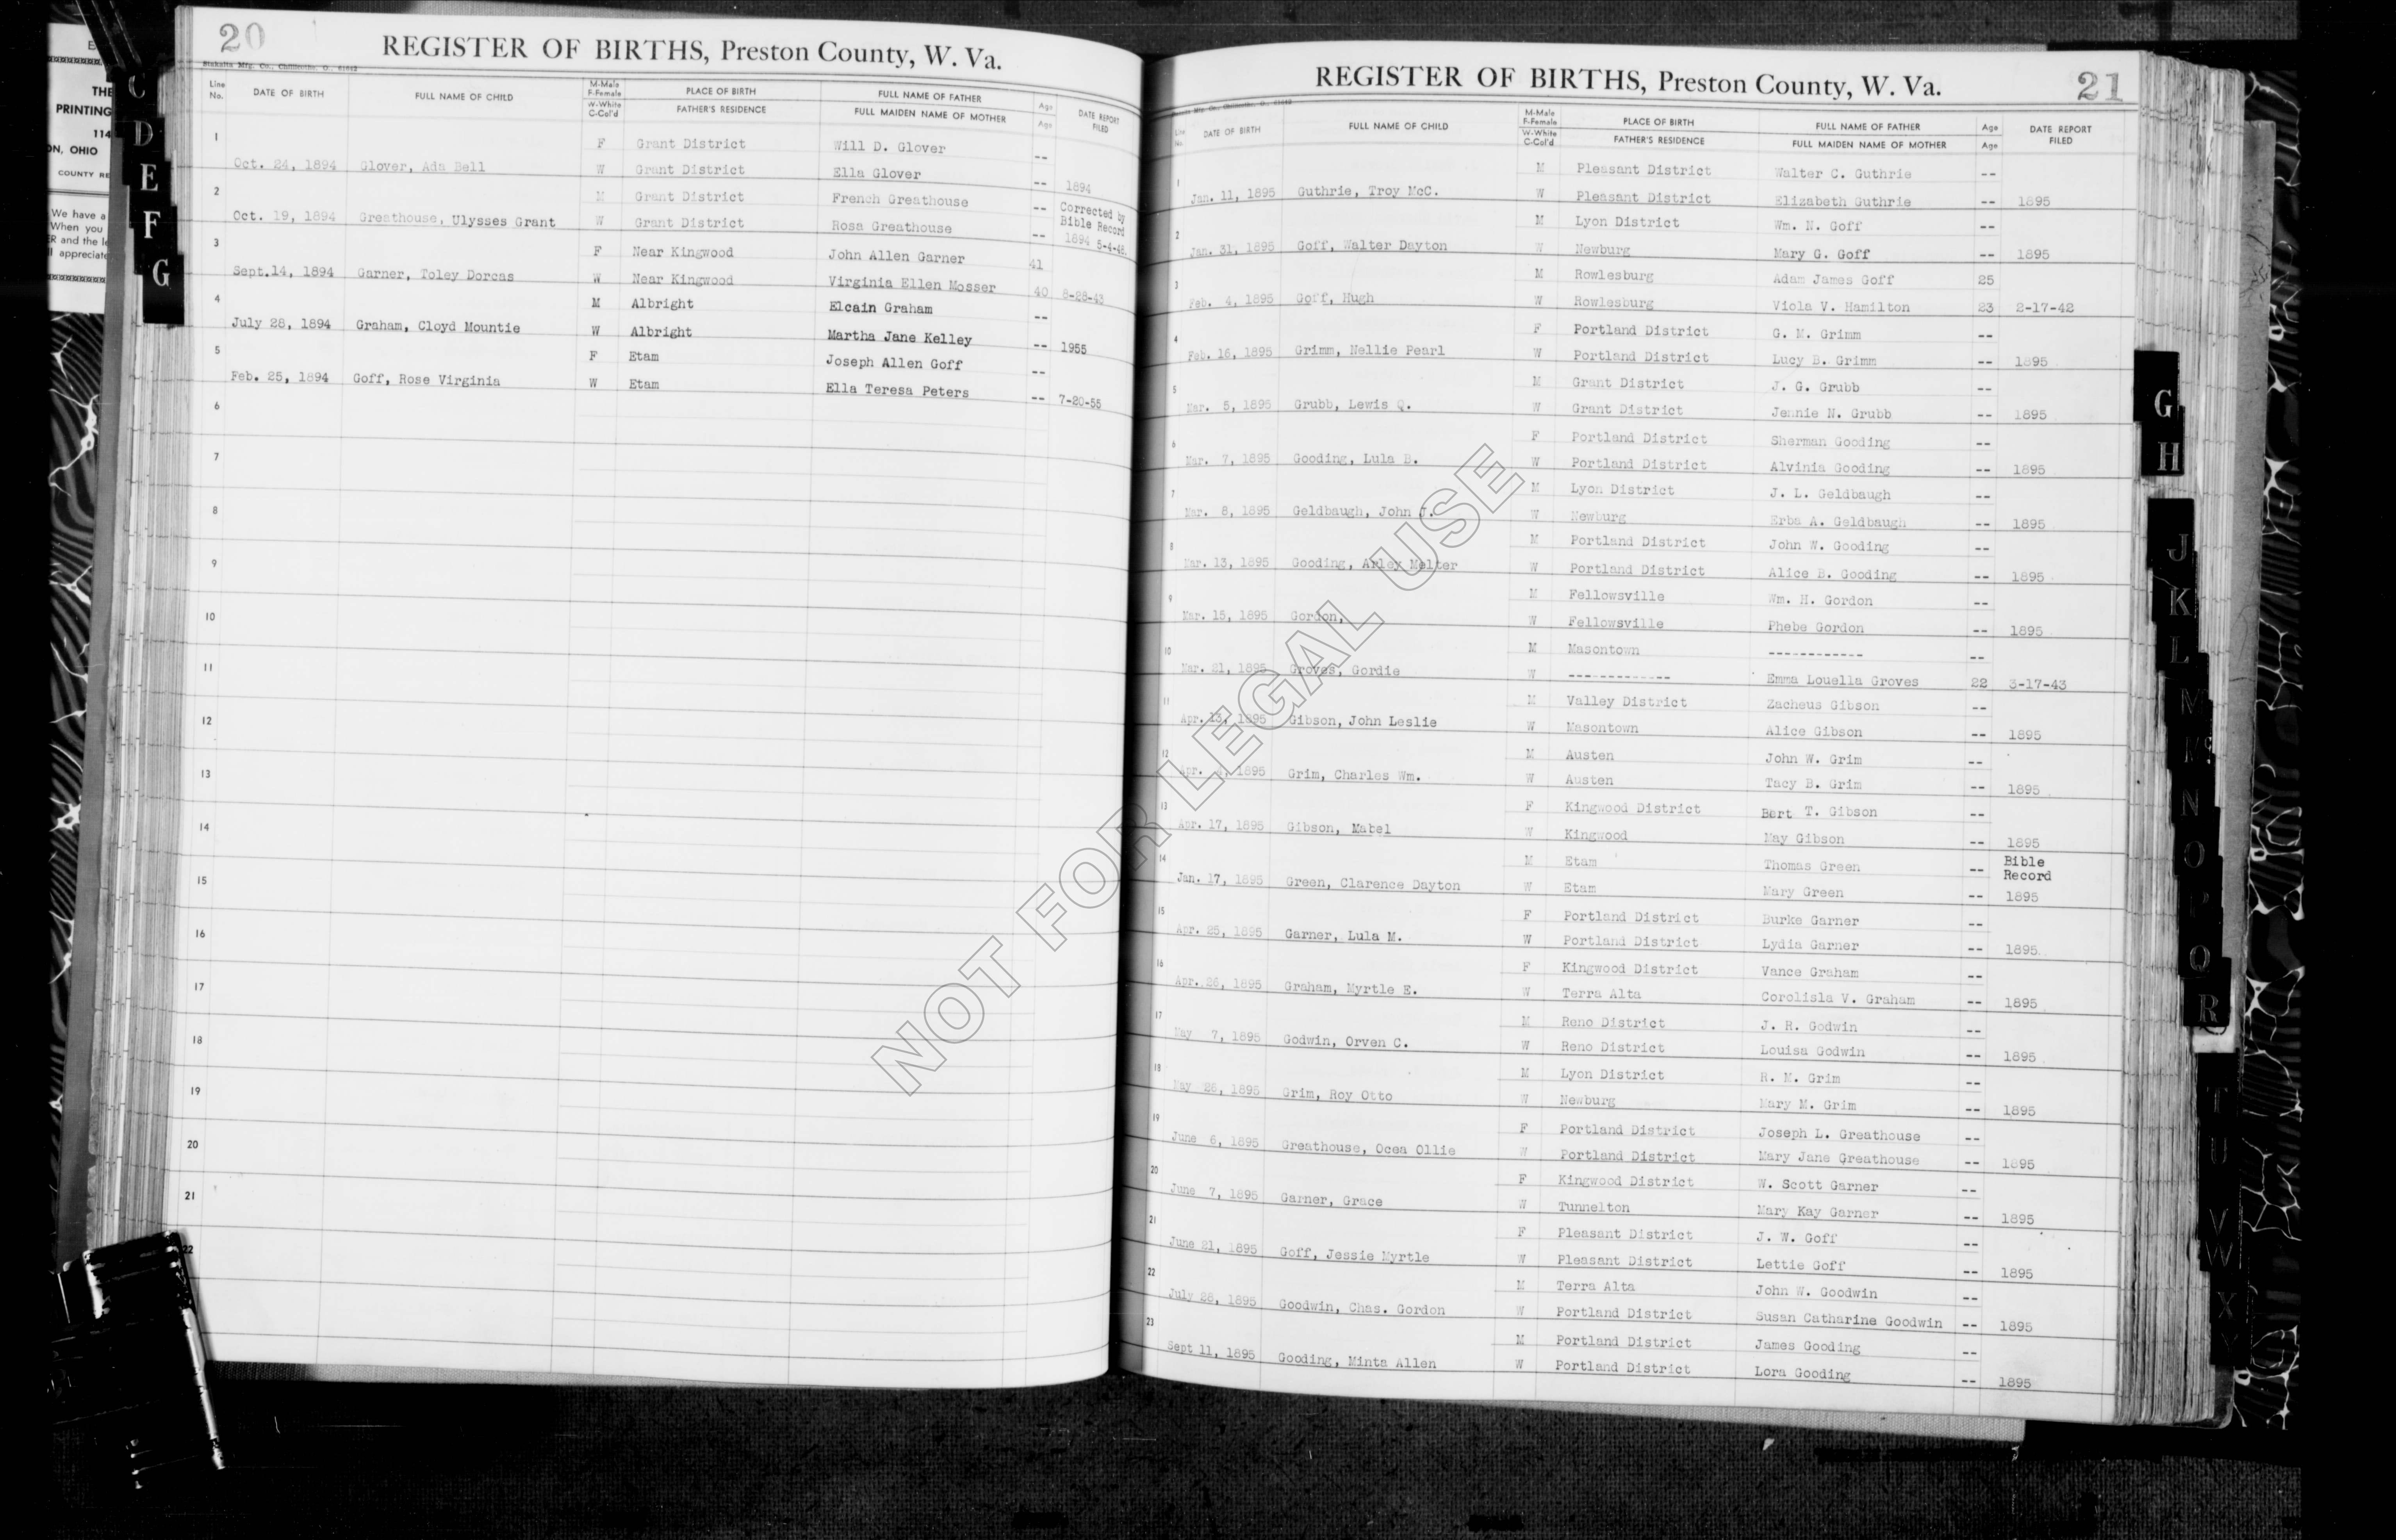 20
REGISTER OF BIRTHS, Preston County, W. Va.
Line No. DATE OF BIRTH FULL NAME OF CHILD M-Male F-Female W-White C-Col'd PLACE OF BIRTH FATHER'S RESIDENCE FULL NAME OF FATHER FULL MAIDEN NAME OF MOTHER Age Age DATE REPORT FILED
1 F Grant District Will D. Glover --
Oct. 24, 1894 Glover, Ada Bell W Grant District Ella Glover -- 1894
2 M Grant District French Greathouse -- Corrected by Bible Record
Oct. 19, 1894 Greathouse, Ulysses Grant W Grant District Rosa Greathouse -- 1894 5-4-48
3 F Near Kingwood John Allen Garner 41
Sept.14, 1894 Garner, Toley Dorcas W Near Kingwood Virginia Ellen Mosser 40 8-28-43
4 M Albright Elcain Graham --
July 28, 1894 Graham, Cloyd Mountie W Albright Martha Jane Kelley -- 1955
5 F Etam Joseph Allen Goff --
Feb. 25, 1894 Goff, Rose Virginia W Etam Ella Teresa Peters -- 7-20-55
6
7
8
9
10
11
12
13
14
15
16
17
18
19
20
21
22
REGISTER OF BIRTHS, Preston County, W. Va.
21
Line No. DATE OF BIRTH FULL NAME OF CHILD M-Male F-Female W-White C-Col'd PLACE OF BIRTH FATHER'S RESIDENCE FULL NAME OF FATHER FULL MAIDEN NAME OF MOTHER Age Age DATE REPORT FILED
1 M Pleasant District Walter C. Guthrie --
Jan. 11, 1895 Guthrie, Troy McC. W Pleasant District Elizabeth Guthrie -- 1895
2 M Lyon District Wm. N. Goff --
Jan. 31, 1895 Goff, Walter Dayton W Newburg Mary G. Goff -- 1895
3 M Rowlesburg Adam James Goff 25
Feb. 4, 1895 Goff, Hugh W Rowlesburg Viola V. Hamilton 23 2-17-42
4 F Portland District G. M. Grimm --
Feb. 16, 1895 Grimm, Nellie Pearl W Portland District Lucy B. Grimm -- 1895
5 M Grant District J. G. Grubb --
Mar. 5, 1895 Grubb, Lewis Q. W Grant District Jennie N. Grubb -- 1895
6 F Portland District Sherman Gooding --
Mar. 7, 1895 Gooding, Lula B. W Portland District Alvinia Gooding -- 1895
7 M Lyon District J. L. Geldbaugh --
Mar. 8, 1895 Geldbaugh, John J. W Newburg Erba A. Geldbaugh -- 1895
8 M Portland District John W. Gooding --
Mar. 13, 1895 Gooding, Arley Melter W Portland District Alice B. Gooding -- 1895
9 M Fellowsville Wm. H. Gordon --
Mar. 15, 1895 Gordon, W Fellowsville Phebe Gordon -- 1895
10 M Masontown ------------ --
Mar. 21, 1895 Groves, Gordie W ------------- Emma Louella Groves 22 3-17-43
11 M Valley District Zacheus Gibson --
Apr. 13, 1895 Gibson, John Leslie W Masontown Alice Gibson -- 1895
12 M Austen John W. Grim --
Apr. 1895 Grim, Charles Wm. W Austen Tacy B. Grim -- 1895
13 F Kingwood District Bert T. Gibson --
Apr. 17, 1895 Gibson, Mabel W Kingwood May Gibson -- 1895
14 M Etam Thomas Green -- Bible Record
Jan. 17, 1895 Green, Clarence Dayton W Etam Mary Green -- 1895
15 F Portland District Burke Garner --
Apr. 25, 1895 Garner, Lula M. W Portland District Lydia Garner -- 1895
16 F Kingwood District Vance Graham --
Apr. 26, 1895 Graham, Myrtle E. W Terra Alta Corolisla V. Graham -- 1895
17 M Reno District J. R. Godwin --
May 7, 1895 Godwin, Orven C. W Reno District Louisa Godwin -- 1895
18 M Lyon District R. M. Grim --
May 26, 1895 Grim, Roy Otto W Newburg Mary M. Grim -- 1895
19 F Portland District Joseph L. Greathouse --
June 6, 1895 Greathouse, Ocea Ollie W Portland District Mary Jane Greathouse -- 1895
20 F Kingwood District W. Scott Garner --
June 7, 1895 Garner, Grace W Tunnelton Mary Kay Garner -- 1895
21 F Pleasant District J. W. Goff --
June 21, 1895 Goff, Jessie Myrtle W Pleasant District Lettie Goff -- 1895
22 M Terra Alta John W. Goodwin --
July 28, 1895 Goodwin, Chas. Gordon W Portland District Susan Catharine Goodwin -- 1895
23 M Portland District James Gooding --
Sept 11, 1895 Gooding, Minta Allen W Portland District Lora Gooding -- 1895
NOT FOR LEGAL USE
THE
PRINTING
114
ON, OHIO
COUNTY RE
We have a
When you
R and the le
appreciate
C
D
E
F
G
G
H
J
K
L
M
N
O
P
Q
R
T
U
V
W
X